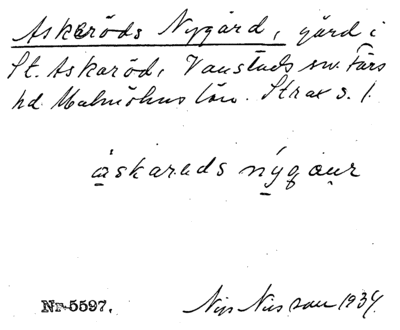 Askeröds Nygård, gård i
St. Askaröd, Vanstads sn. Färs
hd. Malmöhus län. Strax s. 1.
åskaruds nýgaur
Nr 5597. Nils Nilsson 1934.